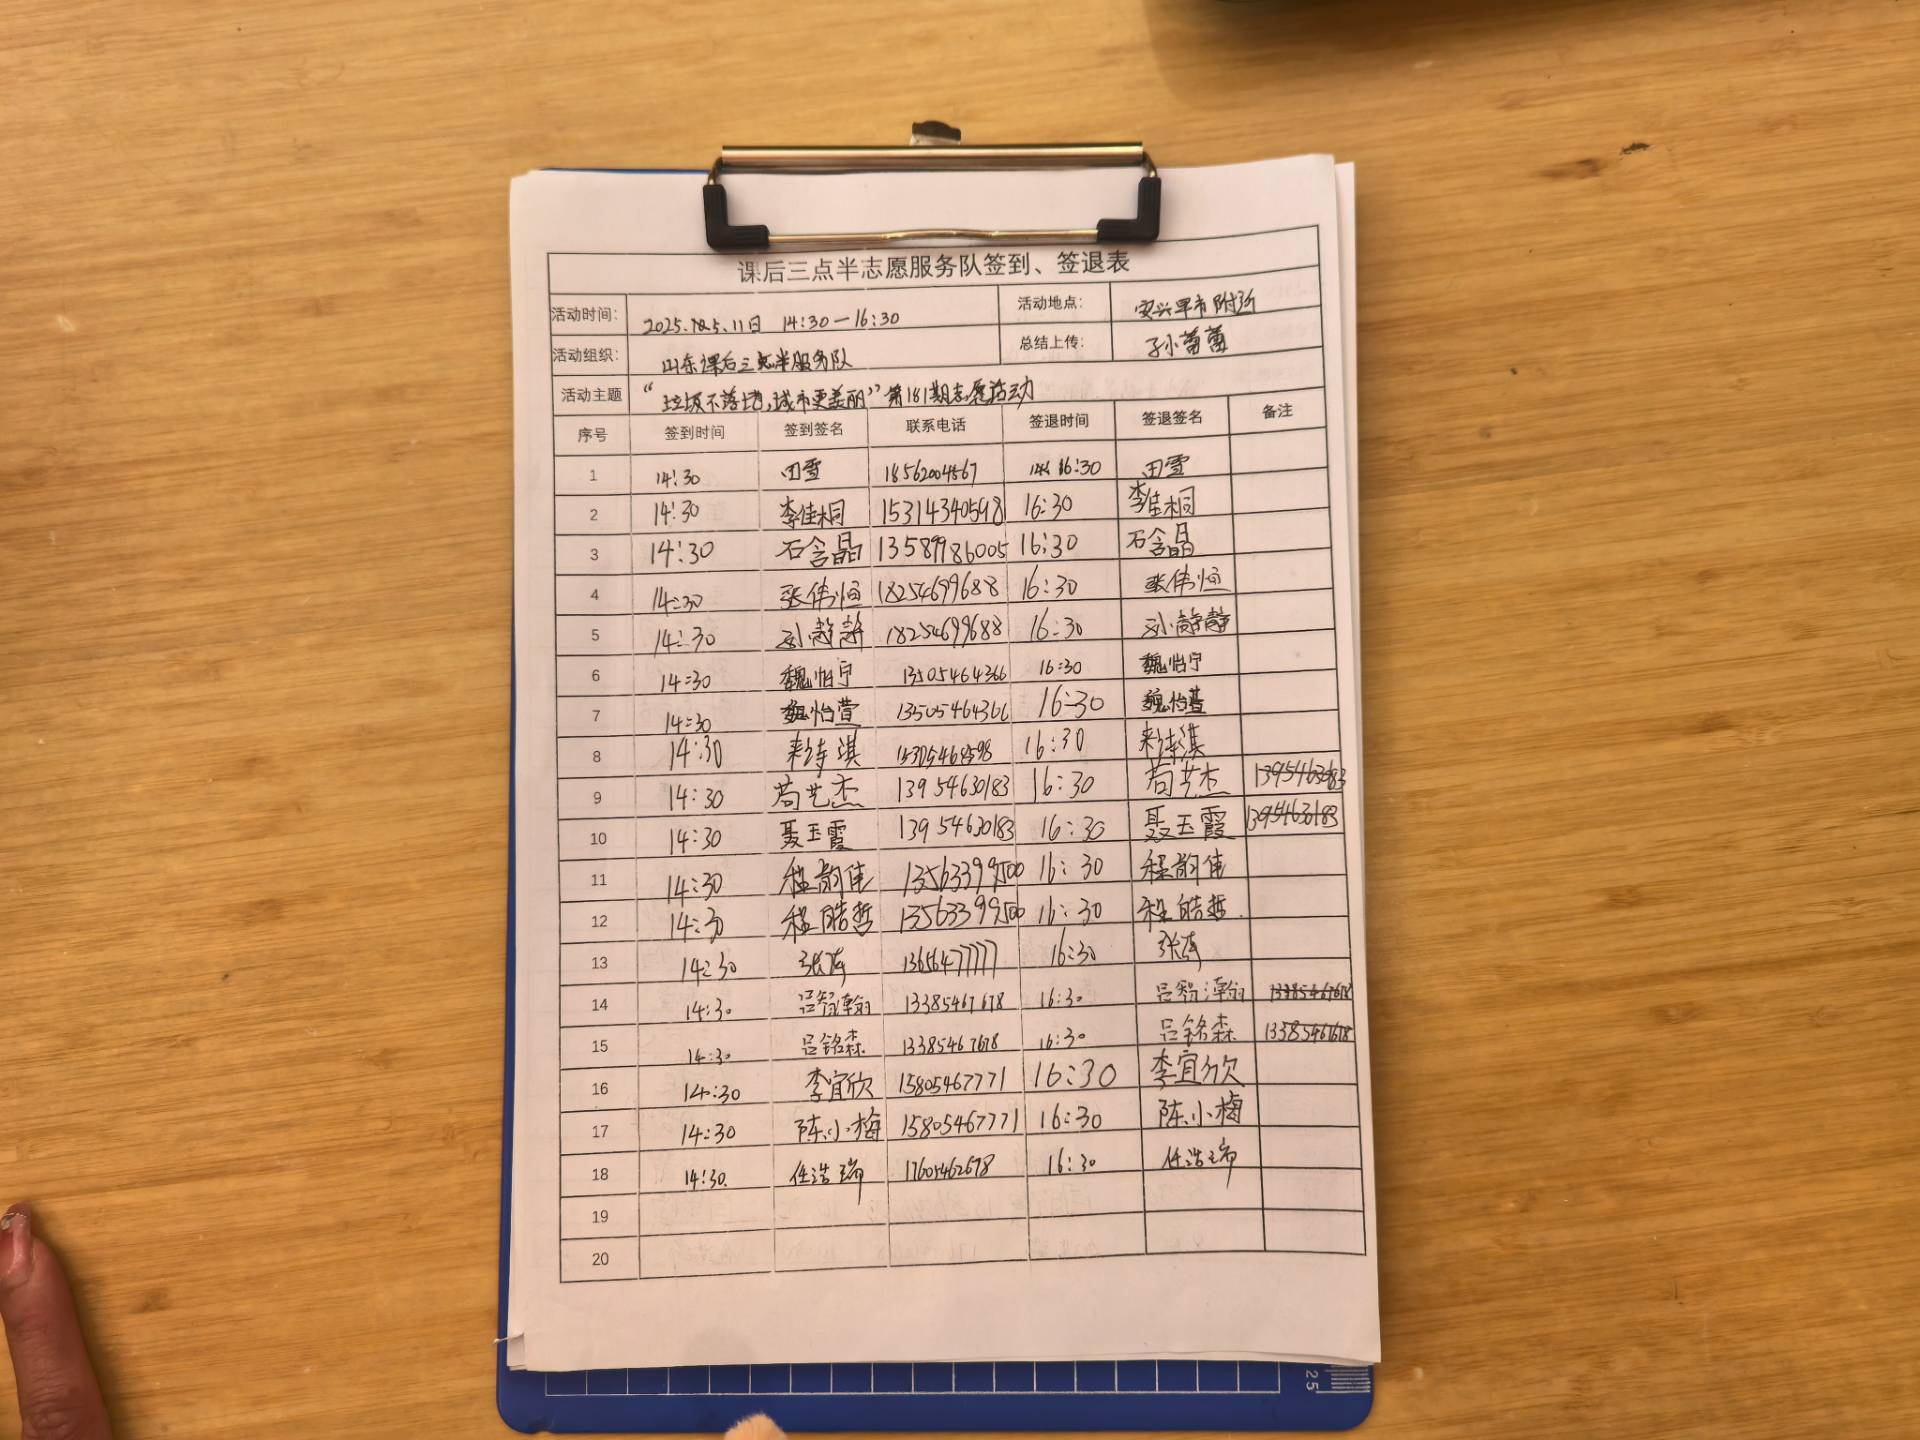 课后三点半志愿服务队签到、签退表
活动时间： 2025. 5.11日 14:30—16:30 活动地点： 安兴早市附近
活动组织： 山东课后三点半服务队 总结上传： 孙小蕾蕾
活动主题 “垃圾不落地，城市更美丽”第181期志愿活动
序号 签到时间 签到签名 联系电话 签退时间 签退签名 备注
1 14:30 田雪 18562004567 16:30 田雪
2 14:30 李佳桐 15314340598 16:30 李佳桐
3 14:30 石含晶 13589986005 16:30 石含晶
4 14:30 张伟恒 18254699688 16:30 张伟恒
5 14:30 孙静静 18254699688 16:30 孙静静
6 14:30 魏怡宁 13505464366 16:30 魏怡宁
7 14:30 魏怡萱 13505464366 16:30 魏怡萱
8 14:30 诗淇 16:30 诗淇
9 14:30 苟艺杰 13954630183 16:30 苟艺杰 13954630183
10 14:30 聂玉霞 13954630183 16:30 聂玉霞 13954630183
11 14:30 程韵佳 13563399500 16:30 程韵佳
12 14:30 程皓哲 13563399500 16:30 程皓哲
13 14:30 张涛 13656477777 16:30 张涛
14 14:30 吕智瀚 13385467678 16:30 吕智瀚 13385467678
15 14:30 吕铭森 13385467678 16:30 吕铭森 13385467678
16 14:30 李宜欣 15805467771 16:30 李宜欣
17 14:30 陈小梅 15805467771 16:30 陈小梅
18 14:30 任浩瑞 17605462678 16:30 任浩瑞
19
20
25